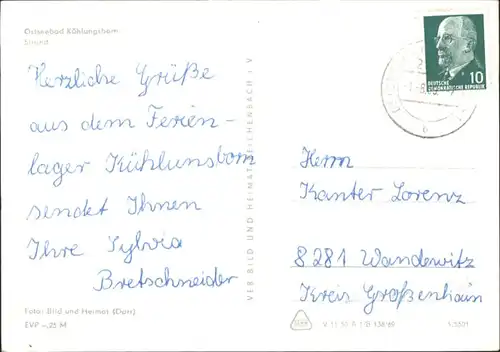 Ostseebad Kühlungsborn
Strand
Herzliche Grüße
aus dem Ferien-
lager Kühlunsborn
sendet Ihnen
Ihre Sylvia
Bretschneider
Foto: Bild und Heimat (Darr)
EVP -,25 M
VEB BILD UND HEIMAT REICHENBACH i. V
10
DEUTSCHE
DEMOKRATISCHE REPUBLIK
b
Herrn
Kanter Lorenz
8281 Wandewitz
Kreis Großenhain
V 11 50 A 1 B 138/69